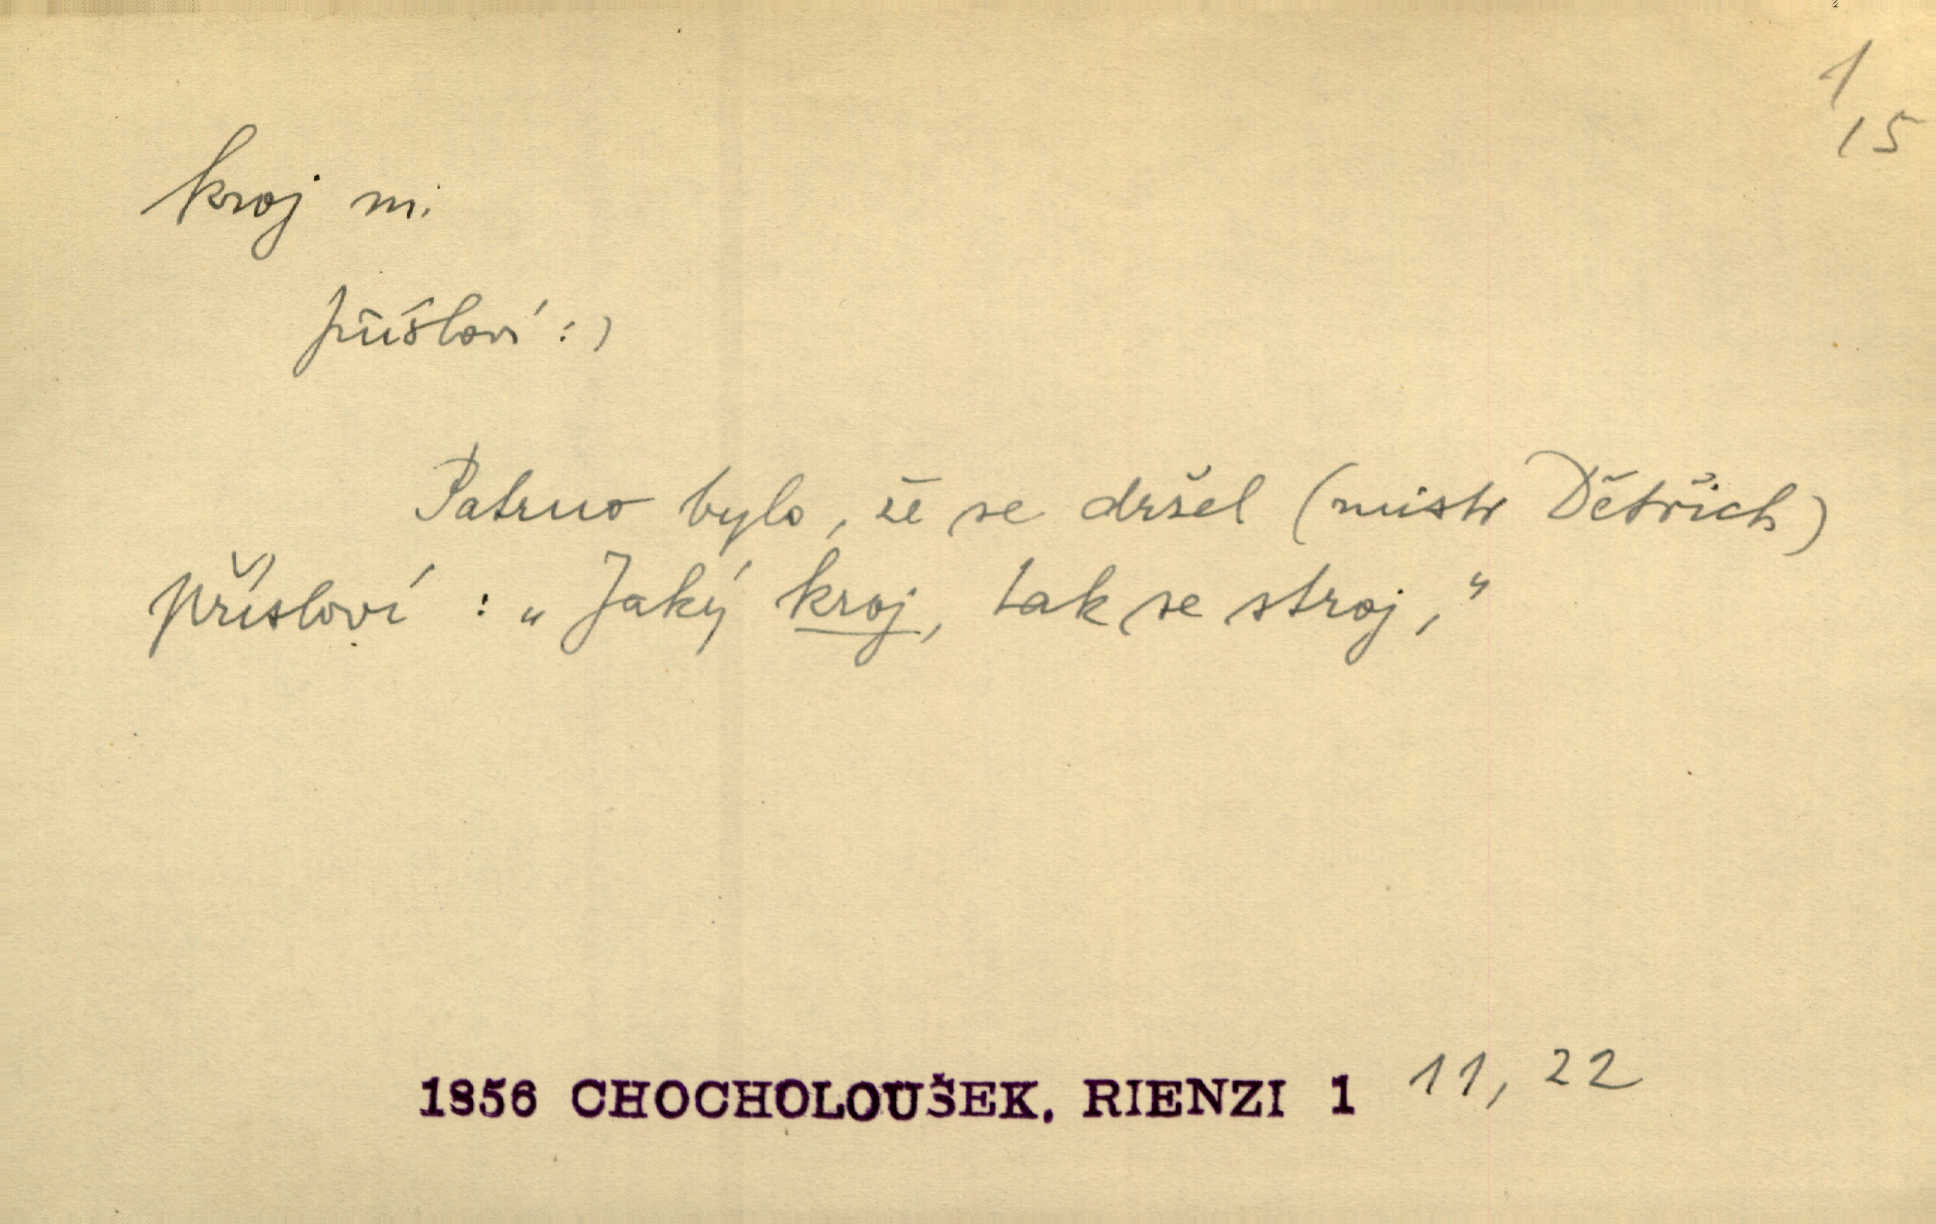 1
15
kroj m.
přísloví :)
Patrno bylo, že se držel (mistr Dětřich)
přísloví : „Jaký kroj, tak se stroj,“
1856 CHOCHOLOUŠEK, RIENZI 1 11, 22